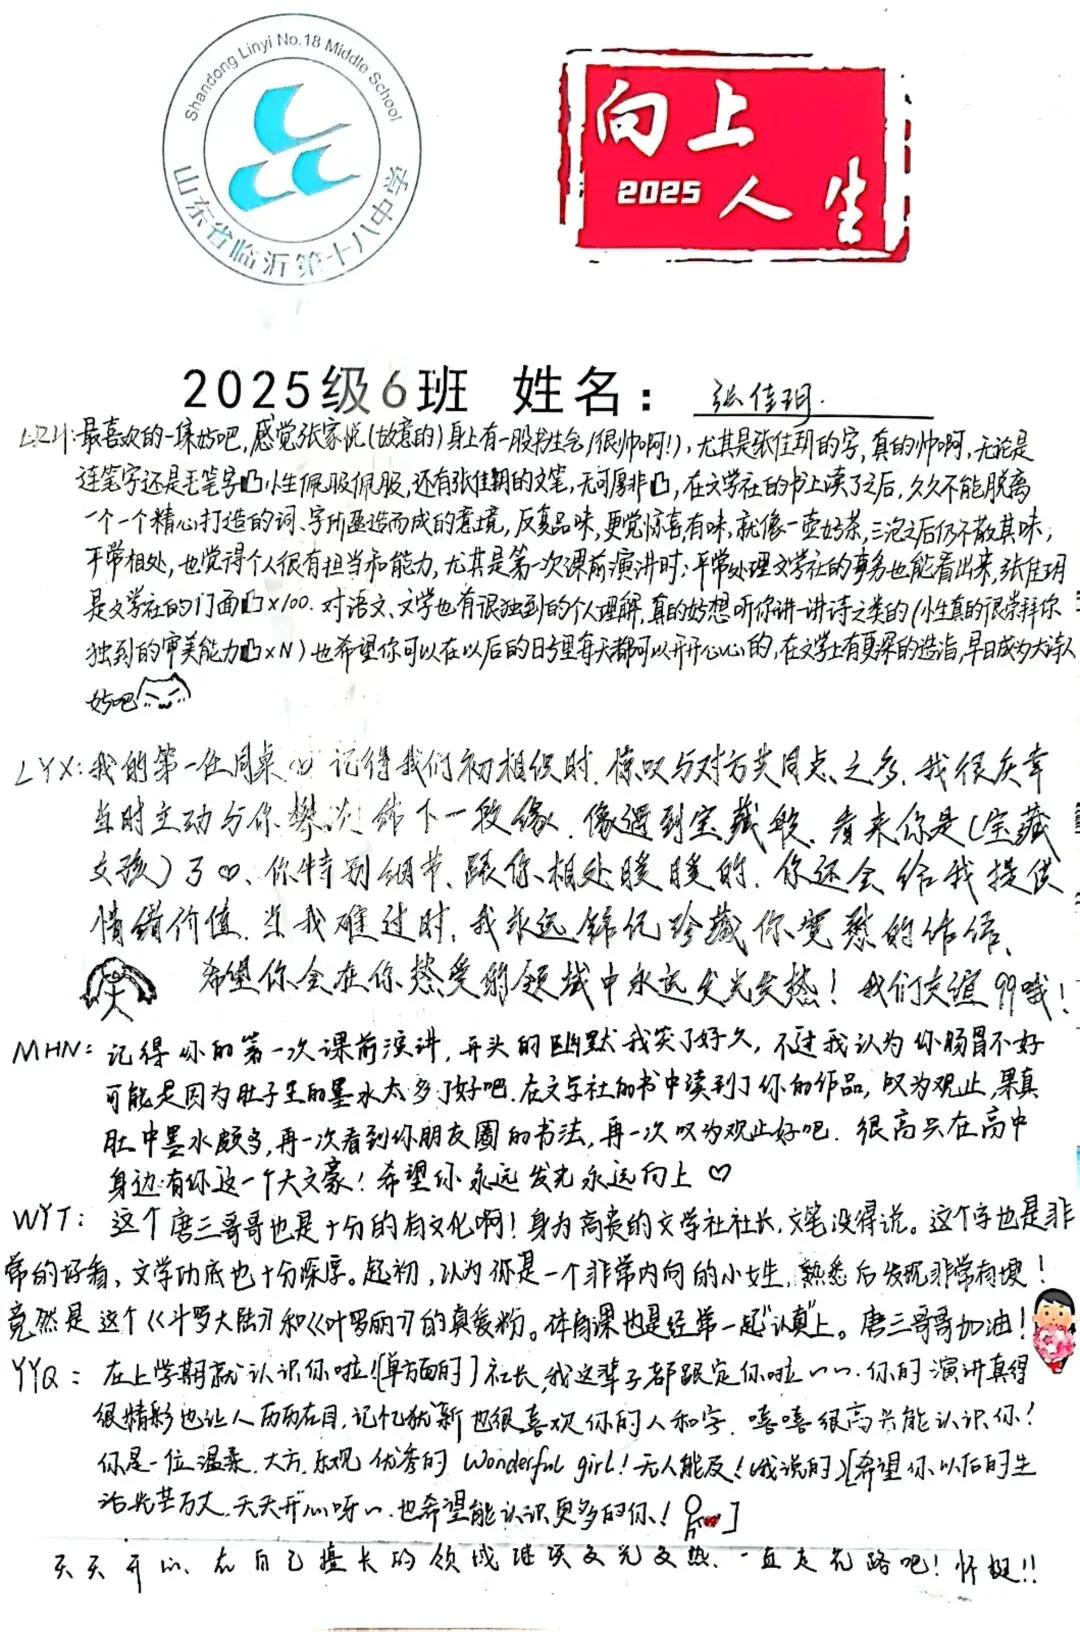 Shandong Linyi No.18 Middle School
山东省临沂第十八中学
向上
2025 人生
2025级6班 姓名：张佳玥.
最喜欢的一集好吧，感觉张家悦(故意的)身上有一股书生气(很帅啊!)，尤其是张佳玥的字，真的帅啊，无论是
连笔字还是毛笔字凸小生佩服佩服，还有张佳玥的文笔，无可厚非凸，在文学社的书上读了之后，久久不能脱离
一个一个精心打造的词、字所营造而成的意境，反复品味，更觉惊喜，有味，就像一壶好茶，三泡之后仍不散其味；
平常相处，也觉得个人很有担当和能力，尤其是第一次课前演讲时；平常处理文学社的事务也能看出来，张佳玥
是文学社的门面凸×100. 对语文、文学也有很独到的个人理解，真的好想听你讲一讲诗之类的(小生真的很崇拜你
独到的审美能力凸×N)也希望你可以在以后的日子里每天都可以开开心心的，在文学上有更深的造诣，早日成为大诗人
好吧
LYX：我的第一任同桌 记得我们初相识时，惊叹与对方共同点之多，我很庆幸
当时主动与你攀谈 结下一段缘，像遇到宝藏般，看来你是(宝藏
女孩)了♡、你特别细节、跟你相处暖暖的，你还会给我提供
情绪价值，当我难过时，我永远铭记珍藏你宽慰的话语、
希望你会在你热爱的领域中永远发光发热！我们友谊99哦！
MHN：记得你的第一次课前演讲，开头的幽默我笑了好久，不过我认为你肠胃不好
可能是因为肚子里的墨水太多了好吧，在文学社的书中读到了你的作品，叹为观止，果真
肚中墨水颇多，再一次看到你朋友圈的书法，再一次叹为观止好吧. 很高兴在高中
身边有你这一个大文豪！希望你永远发光永远向上♡
WYT：这个唐三哥哥也是十分的有文化啊！身为高贵的文学社社长，文笔没得说。这个字也是非
常的好看，文学功底也十分深厚。起初，认为你是一个非常内向的小女生，熟悉后发现非常有梗！
竟然是这个《斗罗大陆》和《叶罗丽》的真爱粉。体育课也是经常一起“认真”上。唐三哥哥加油！
YYQ：在上学期就认识你啦！[单方面的]社长，我这辈子都跟定你啦~~. 你的演讲真得
很精彩也让人历历在目，记忆犹新也很喜欢你的人和字，嘻嘻很高兴能认识你！
你是一位温柔、大方、乐观、优秀的 Wonderful girl！无人能及！(我说的)[希望你以后的生
活光芒万丈，天天开心呀~，也希望能认识更多的你！]
天天开心、在自己擅长的领域继续发光发热、一直走花路吧！怀挺！！